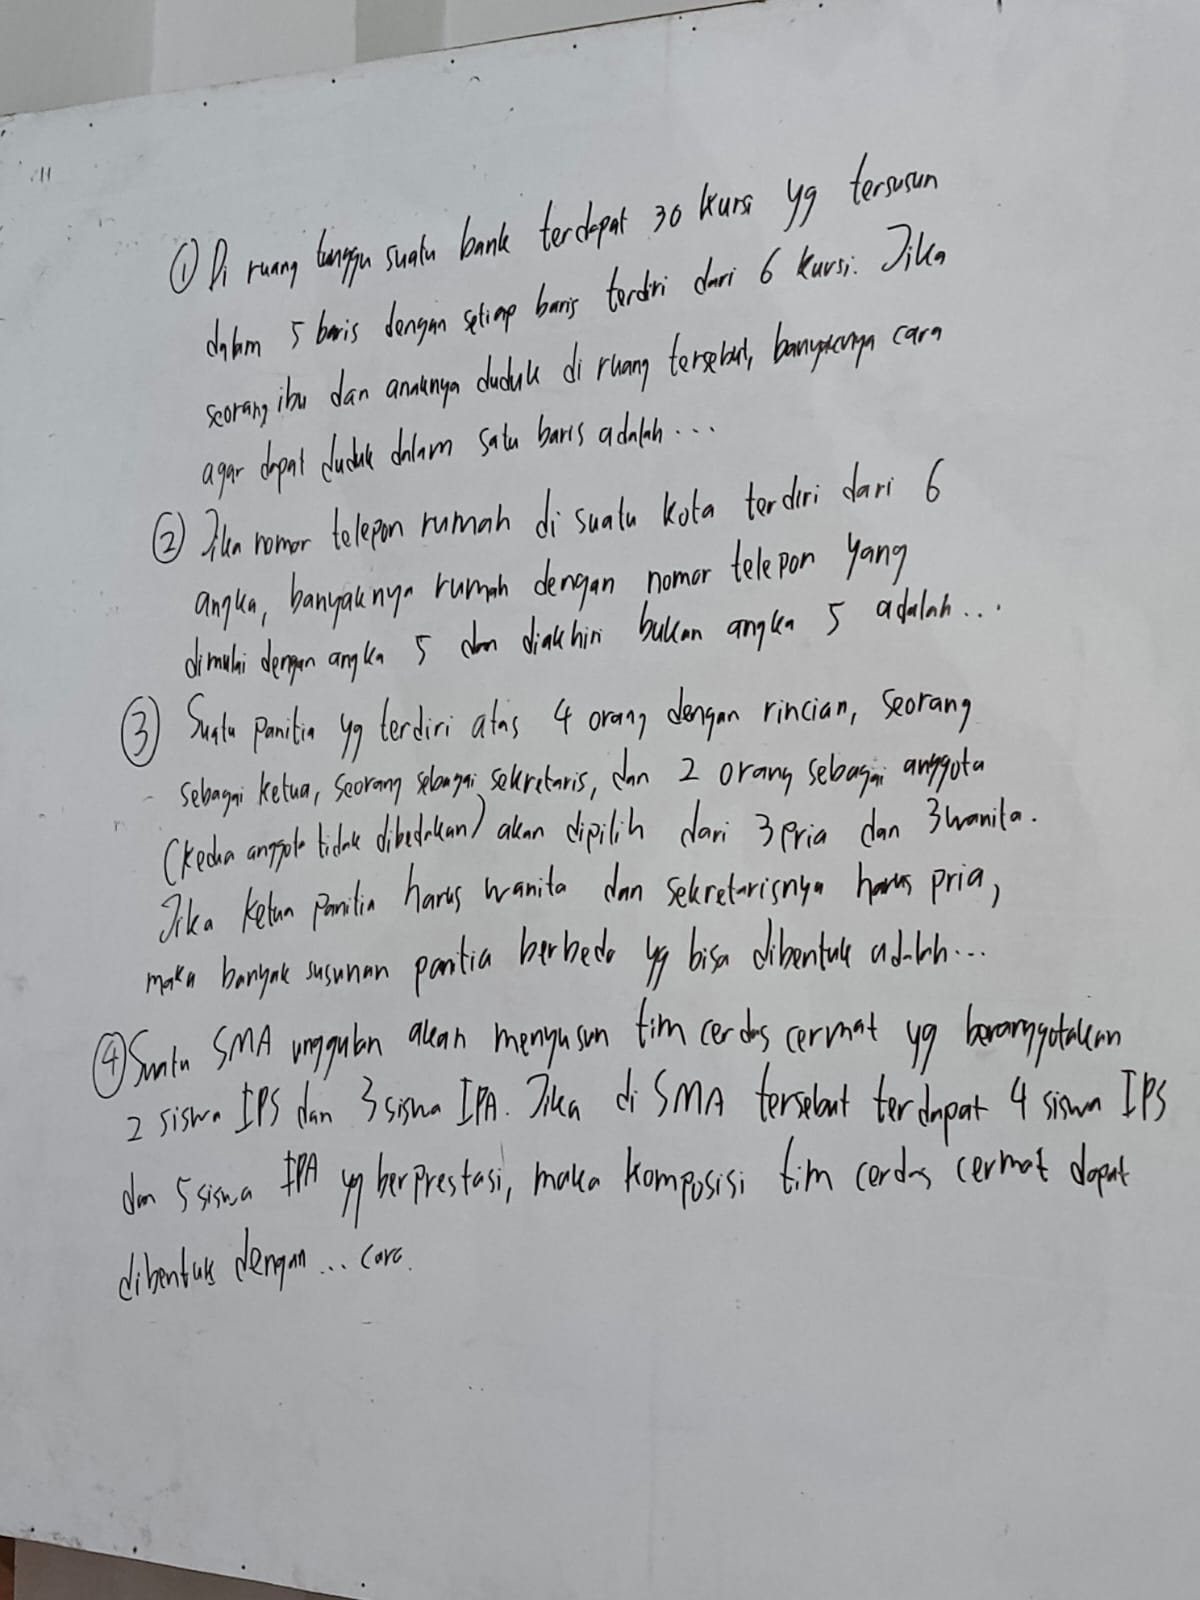 ① Di ruang tunggu suatu bank terdapat 30 kursi yg tersusun
dalam 5 baris dengan setiap baris terdiri dari 6 kursi. Jika
seorang ibu dan anaknya duduk di ruang tersebut, banyaknya cara
agar dapat duduk dalam satu baris adalah...
② Jika nomor telepon rumah di suatu kota terdiri dari 6
angka, banyaknya rumah dengan nomor telepon yang
dimulai dengan angka 5 dan diakhiri bukan angka 5 adalah...
③ Suatu panitia yg terdiri atas 4 orang dengan rincian, seorang
sebagai ketua, seorang sebagai sekretaris, dan 2 orang sebagai anggota
(kedua anggota tidak dibedakan) akan dipilih dari 3 pria dan 3 wanita.
Jika ketua panitia harus wanita dan sekretarisnya harus pria,
maka banyak susunan panitia berbeda yg bisa dibentuk adalah...
④ Suatu SMA unggulan akan menyusun tim cerdas cermat yg beranggotakan
2 siswa IPS dan 3 siswa IPA. Jika di SMA tersebut terdapat 4 siswa IPS
dan 5 siswa IPA yg berprestasi, maka komposisi tim cerdas cermat dapat
dibentuk dengan ... cara.